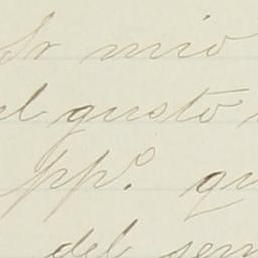 Sr mio
el gusto
pp.º qu
del sem